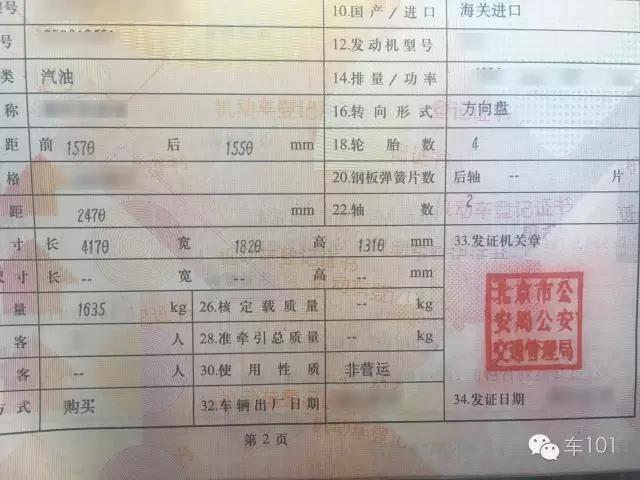 型号 10.国产/进口 海关进口
号 12.发动机型号
类 汽油 14.排量/功率
称 16.转向形式 方向盘
距 前 1570 后 1550 mm 18.轮胎数 4
格 20.钢板弹簧片数 后轴 -- 片
距 2470 mm 22.轴数 2
寸 长 4170 宽 1820 高 1310 mm 33.发证机关章
尺寸 长 -- 宽 -- 高 -- mm
量 1635 kg 26.核定载质量 -- kg
北京市公
安局公安
交通管理局
客 人 28.准牵引总质量 -- kg
客 -- 人 30.使用性质 非营运
方式 购买 32.车辆出厂日期 34.发证日期
第2页
车101